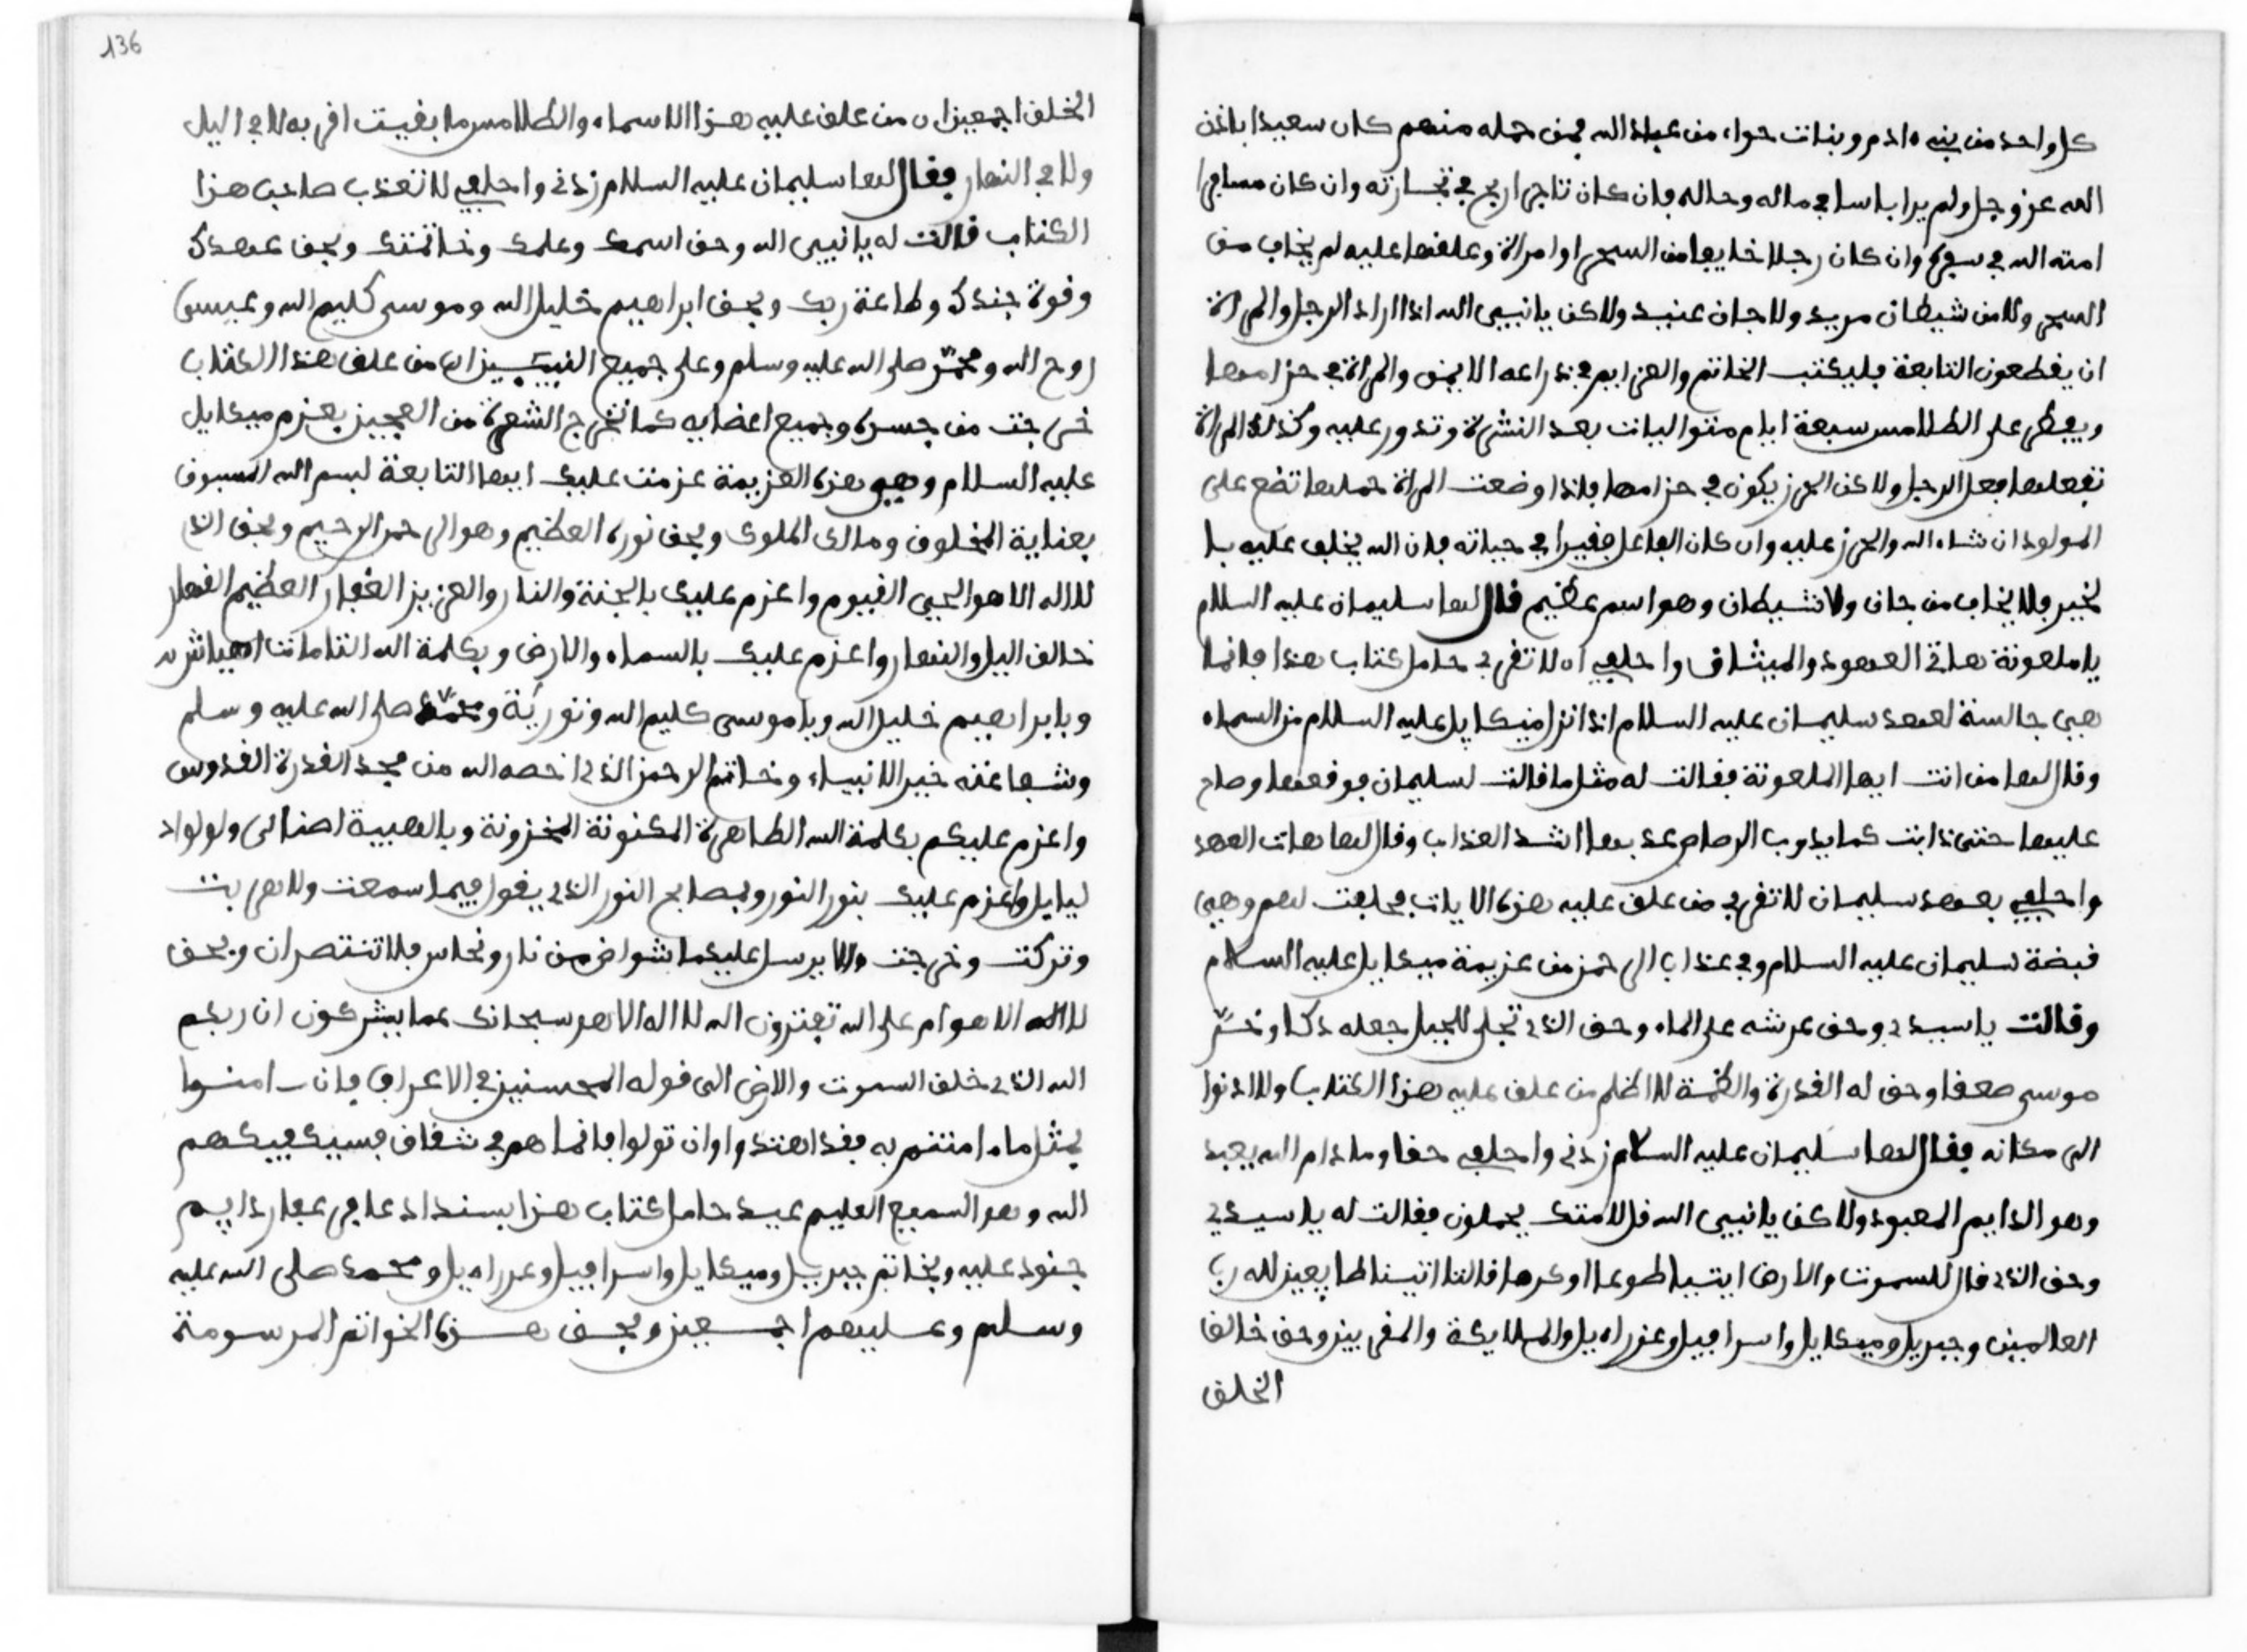 كل واحد من بنيه ادم وبنات حواء من عباد الله فمن حمله منهم كان سعيدا باذن
الله عز وجل ولم يرا باسا في ماله وحاله فان كان تاجرا ربح في تجارته وان كان مسافرا
امنه الله في سفره وان كان رجلا خايفا من السحر او امراة وعلقها عليه لم يخاف من
السحر ولا من شيطان مريد ولا جان عنيد ولاكن يا نبيى الله اذا اراد الرجل والمراة
ان يقطعون التابعة فليكتب الخاتم والعزايم في ذراعه الايمن والمراة في حزامها
ويفطر على الطلامس سبعة ايام متواليات بعد النشرة وتدور عليه وكذلك المراة
تفعلها فعل الرجل ولاكن الحرز يكون في حزامها فاذا وضعت المراة حملها تضع على
المولود ان شاء الله والحرز عليه وان كان الفاعل فقيرا في حياته فان الله يخلف عليه با
لخير فلا يخاف من جان ولا شيطان وهو اسم عظيم قال لها سليمان عليه السلام
يا ملعونة هاتي العهود والميثاق واحلفي ان لا تقربي حامل كتاب هذا فانما
هيى جالسة لعهد سليمان عليه السلام اذا نزل ميكايل عليه السلام من السماء
وقال لها من انت ايها الملعونة فقالت له مثل ما قالت لسليمان فوقعها وصاح
عليها حتى ذابت كما يذوب الرصاص عذبها اشد العذاب وقال لها هات العهد
واحلفي بعهد سليمان لا تقربي من علق عليه هزه الايات فحلفت لهم وهيى
قبضة سليمان عليه السلام وفي عذاب الرحمز من عزيمة ميكايل عليه السلام
وقالت يا سيدي وحق عرشه على الماء وحق الذي تجلى للجبل جعله دكا وخر
موسى صعفا وحق له القدرة والعظمة لا اظلم من علق عليه هزا الكتاب ولا ادنوا
الى مكانه فقال لها سليمان عليه السلام زدني واحلفي حقا وما دام الله يعبد
وهو الدايم المعبود ولا كن يا نبيى الله قل لامتك يحملون فقالت له يا سيدي
وحق الذي قال للسموت والارض ايتيا طوعا او كرها قالتا اتينا طايعيز لله رب
العالمين وجبريل وميكايل واسرافيل وعزراءيل والملايكة والمقربيز وحق خالق
الخلق
136
الخلق اجمعيز ان من علق عليه هزا الاسماء والطلامس ما بقيت اقربه لا في اليل
ولا في النهار فقال لها سليمان عليه السلام زدني واحلفي لا تعذب صاحب هزا
الكتاب قالت له يا نبيى الله وحق اسمك وعلمك وخاتمتك وبحق عهدك
وقوة جندك وطاعة ربك وبحق ابراهيم خليل الله وموسى كليم الله وعيسى
روح الله ومحمد صلى الله عليه وسلم وعلى جميع النبييز ان من علق هذا الكتاب
خرجت من جسده وجميع اعضايه كما تخرج الشعرة من العجيز بعزم ميكايل
عليه السلام وهيى هزه العزيمة عزمت عليك ايها التابعة لبسم الله المسبوق
بعناية المخلوق ومالك الملوك وبحق نوره العظيم وهو الرحمز الرحيم وبحق الذ
لا اله الا هو الحيى القيوم واعزم عليك بالجنة والنار والعزيز الغفار العظيم القهار
خالق اليل والنهار واعزم عليك بالسماء والارض وبكلمة الله التامات اهيا شر
وبابراهيم خليل الله ويا موسى كليم الله وتورية ومحمد صلى الله عليه وسلم
وشفاعته خير الانبياء وخاتم الرحمز الذي اخصه الله من مجد القدرة القدوس
واعزم عليكم بكلمة الله الطاهرة المكنونة المخزونة وبالهيبة اصنالى ولولواد
ليايل واعزم عليك بنور النور وبمصابح النور الذي يقول فيما سمعت ولا هربت
وتركت وخرجت والا يرسل عليكما شواض من نار ونحاس فلا تنتصران وبحق
لا اله الا هو ام على الله تفترون الله لا اله الا هو سبحانك عما يشركون ان ربكم
الله الذي خلق السموت والارض الى قوله المحسنيز في الاعراف فان ـامنوا
بمثل ما ءامنتم به فقد اهتدوا وان تولوا فانما هم في شقاق فسيكفيكهم
الله وهو السميع العليم عيد حامل كتاب هزا بسنداد عافر عفار دايم
جنود عليه وبخاتم جبريل وميكايل واسرافيل وعزراءيل ومحمد صلى الله عليه
وسلم وعليهم اجمعيز وبحق هزه الخواتم المرسومة